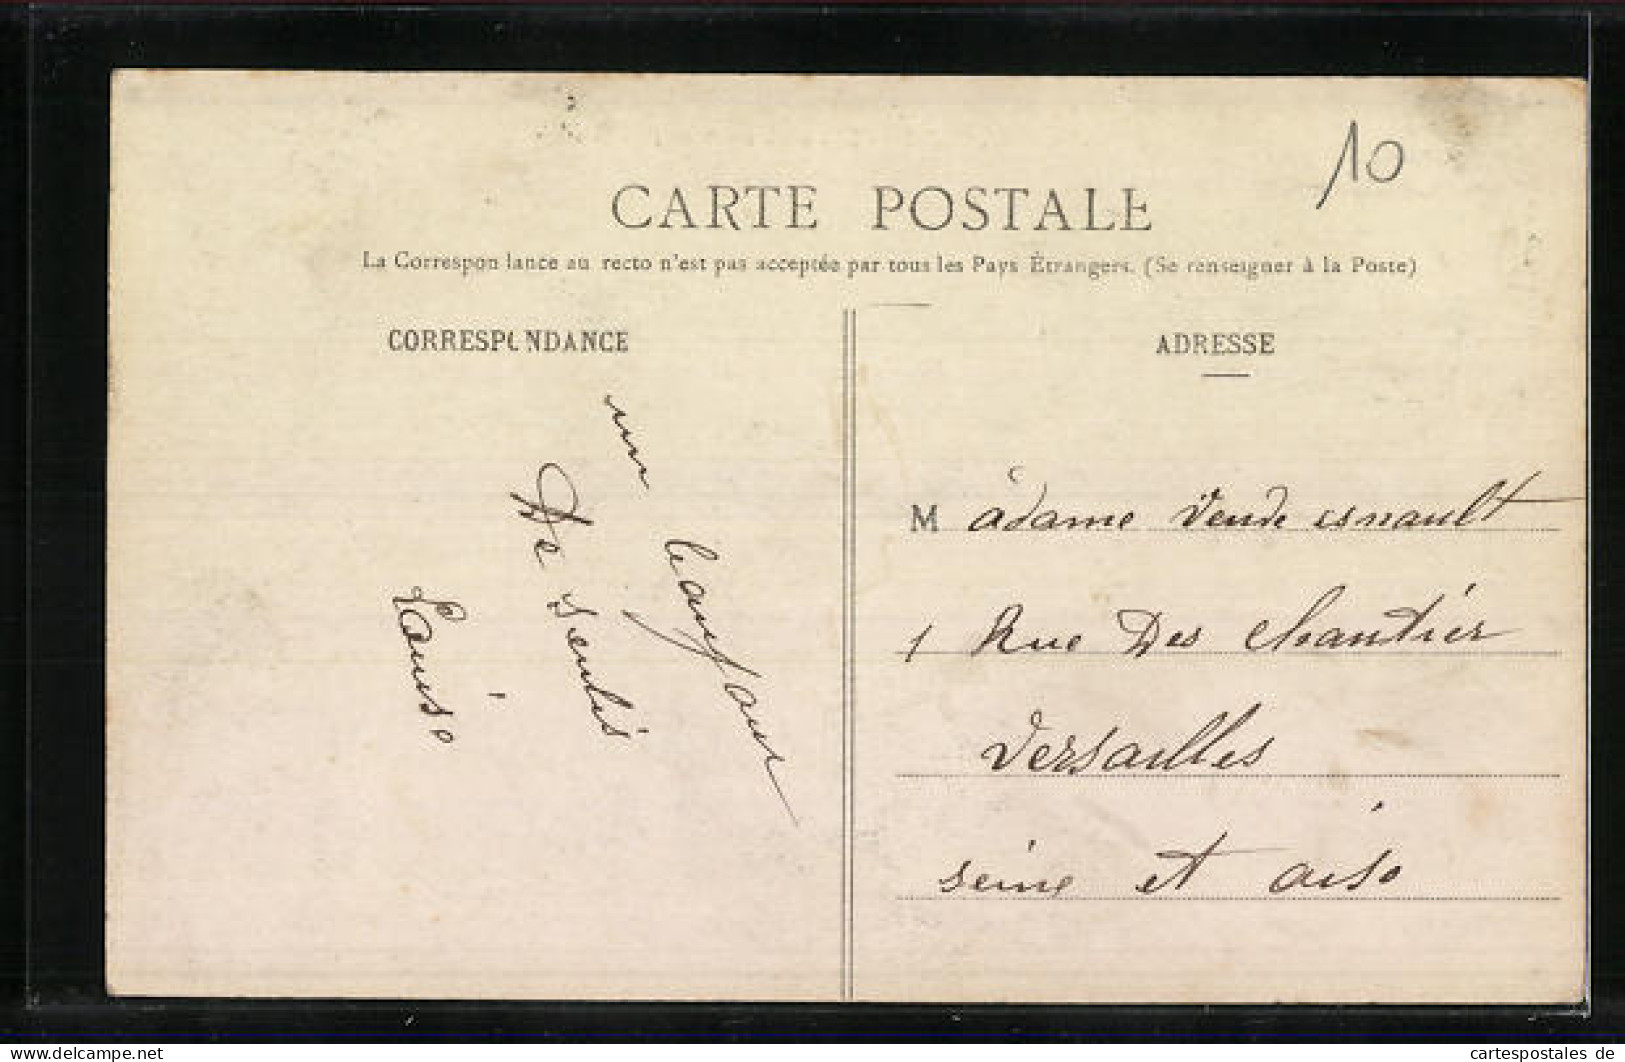 10
CARTE POSTALE
La Correspondance au recto n'est pas acceptée par tous les Pays Étrangers. (Se renseigner à la Poste)
CORRESPONDANCE
un
De Senlis
Louise
ADRESSE
Madame Vende esnault
1 Rue Des chantier
Versailles
Seine et oise
cartespostales de